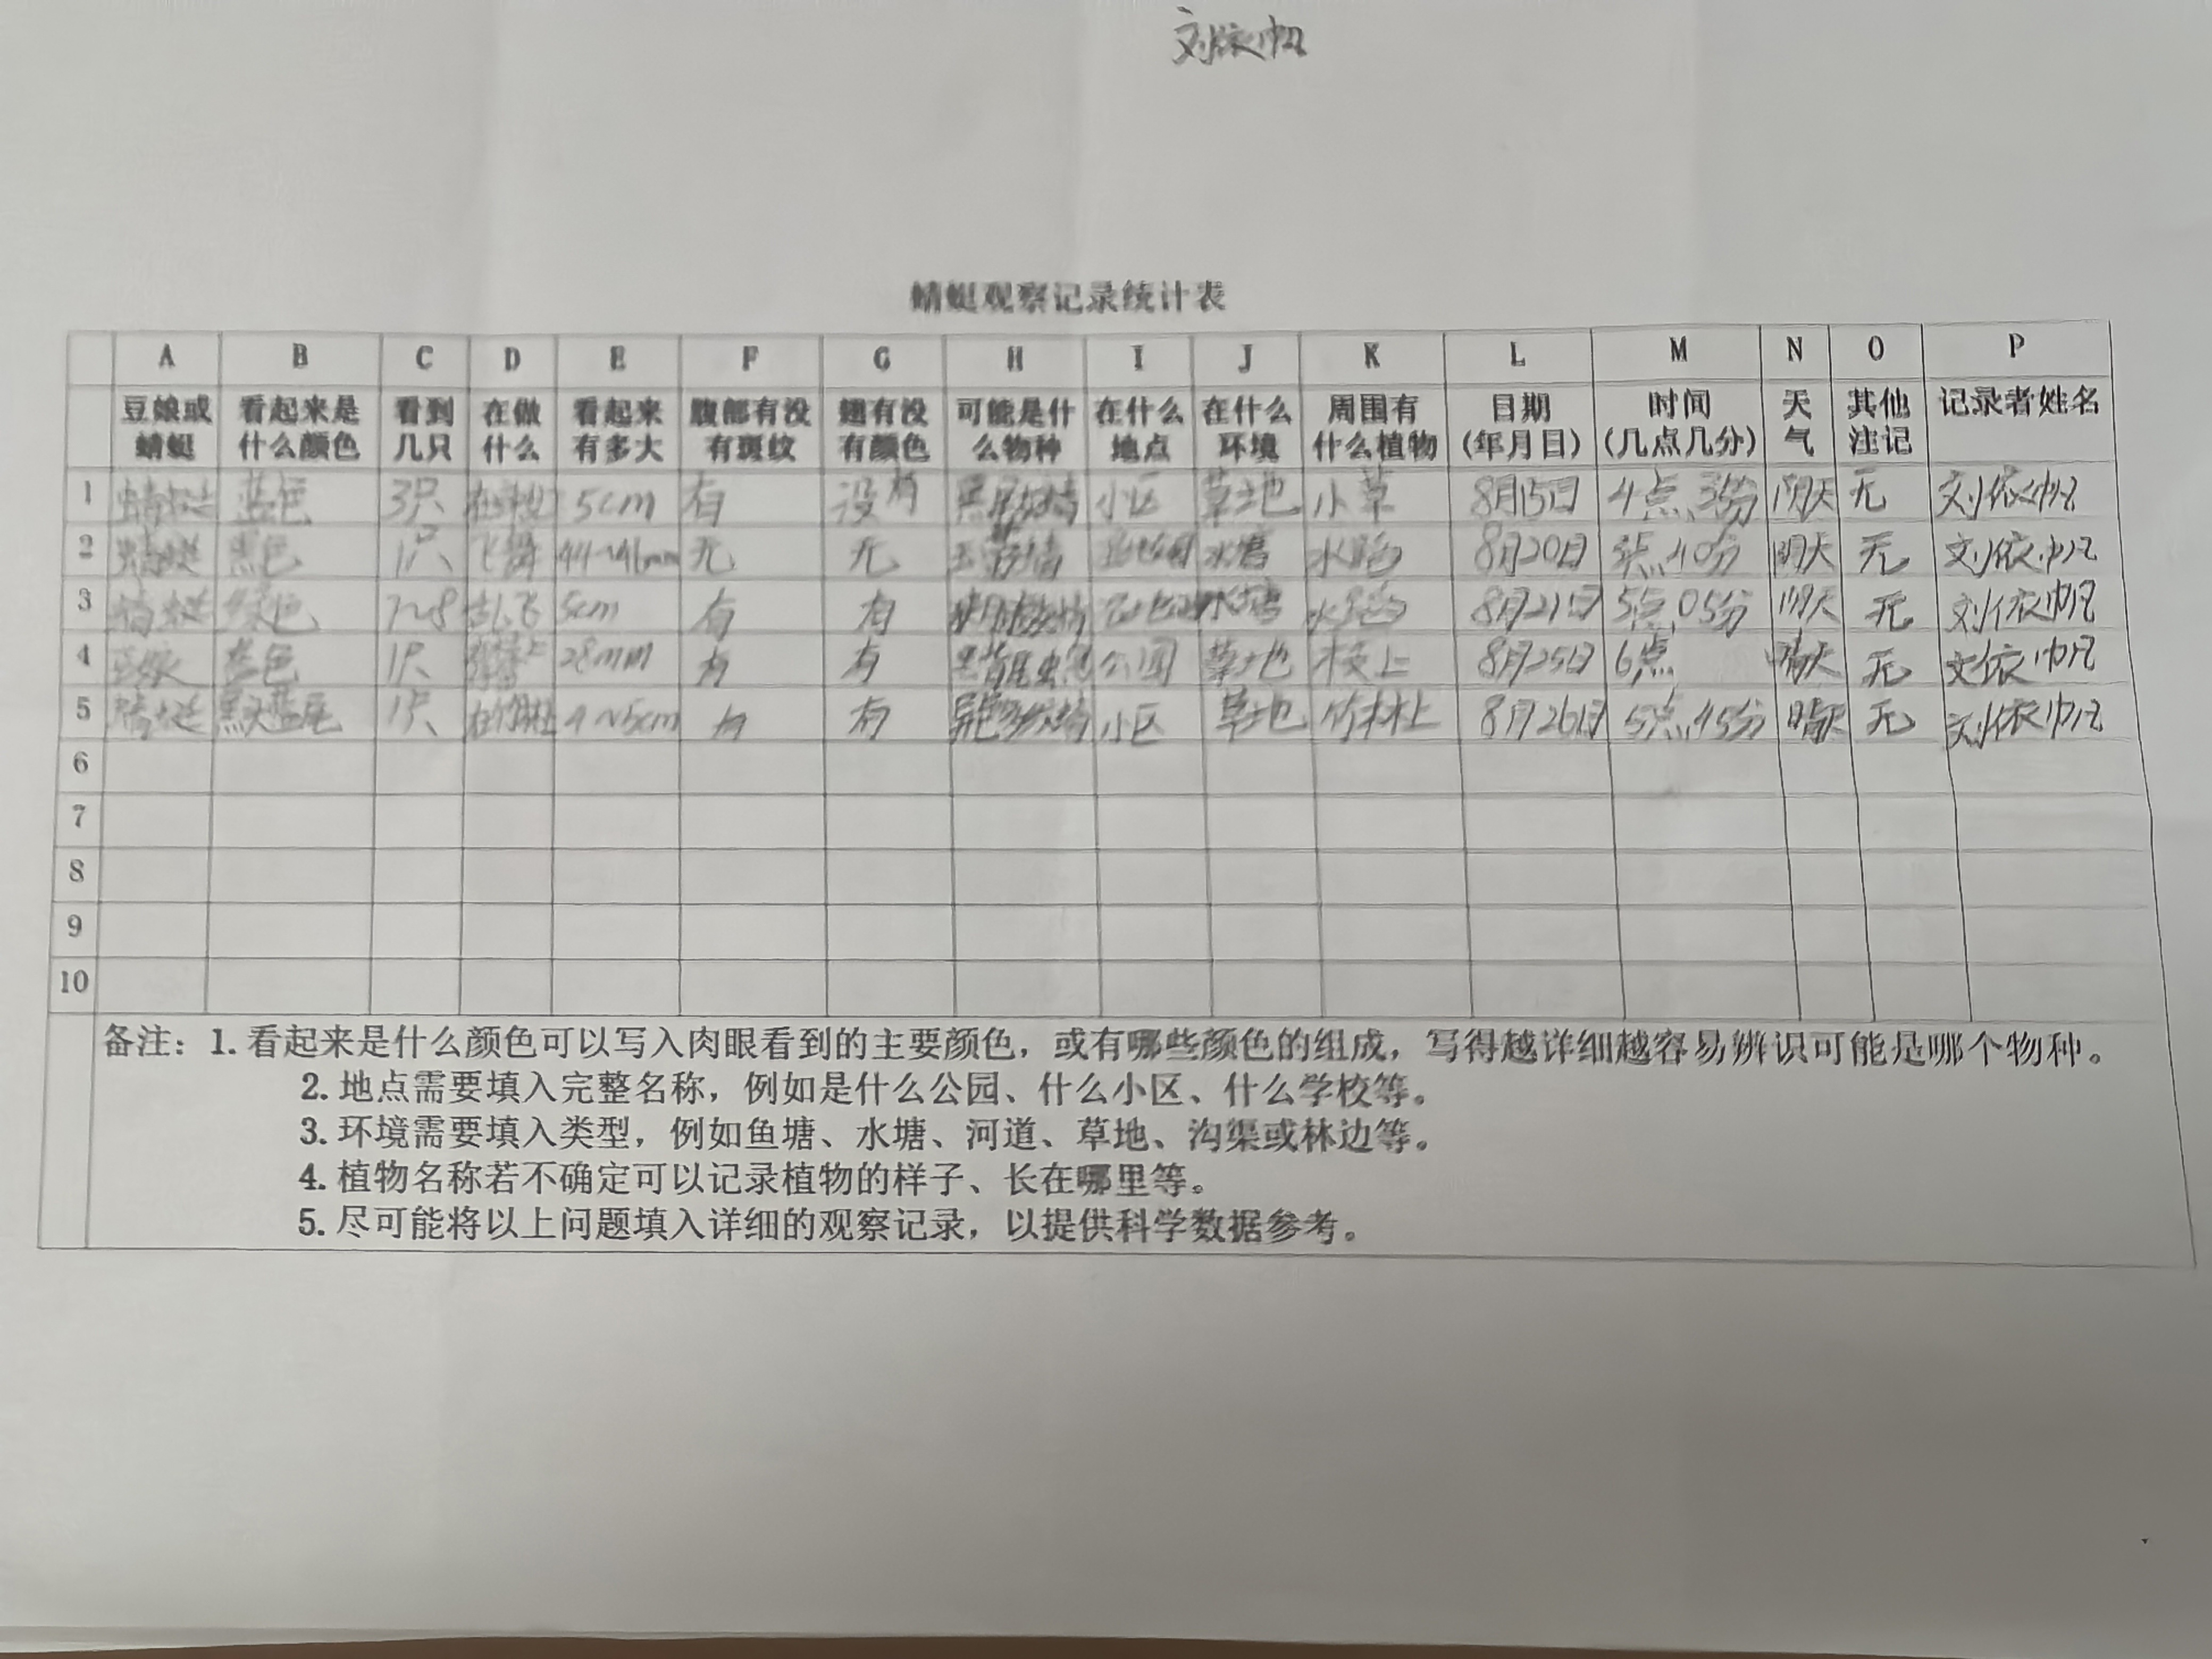 刘依帆
蜻蜓观察记录统计表
A B C D E F G H I J K L M N O P
豆娘或蜻蜓 看起来是什么颜色 看到几只 在做什么 看起来有多大 腹部有没有斑纹 翅有没有颜色 可能是什么物种 在什么地点 在什么环境 周围有什么植物 日期(年月日) 时间(几点几分) 天气 其他注记 记录者姓名
1 蜻蜓 蓝色 3只 5cm 有 没有 小区 草地 小草 8月15日 4点35分 阴天 无 刘依帆
2 蜻蜓 黑色 1只 飞舞 44~46mm 无 无 水塘 8月20日 阴天 无 刘依帆
3 蜻蜓 绿色 7~8 乱飞 5cm 有 有 水塘 8月21日 5点05分 阴天 无 刘依帆
4 豆娘 蓝色 1只 28mm 有 有 公园 草地 枝上 8月25日 6点 晴天 无 刘依帆
5 蜻蜓 黑头蓝尾 1只 4~5cm 有 有 小区 草地 竹林上 8月26日 5点45分 晴天 无 刘依帆
6
7
8
9
10
备注：1. 看起来是什么颜色可以写入肉眼看到的主要颜色，或有哪些颜色的组成，写得越详细越容易辨识可能是哪个物种。
2. 地点需要填入完整名称，例如是什么公园、什么小区、什么学校等。
3. 环境需要填入类型，例如鱼塘、水塘、河道、草地、沟渠或林边等。
4. 植物名称若不确定可以记录植物的样子、长在哪里等。
5. 尽可能将以上问题填入详细的观察记录，以提供科学数据参考。